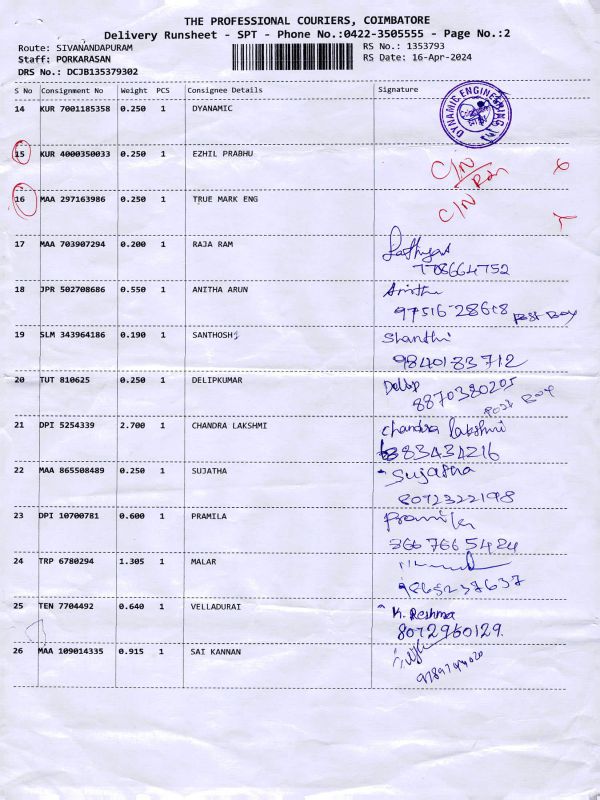 THE PROFESSIONAL COURIERS, COIMBATORE
Delivery Runsheet - SPT - Phone No.:0422-3505555 - Page No.:2
Route: SIVANANDAPURAM RS No.: 1353793
Staff: PORKARASAN RS Date: 16-Apr-2024
DRS No.: DCJB135379302
S No Consignment No Weight PCS Consignee Details Signature
14 KUR 7001185358 0.250 1 DYANAMIC DYNAMIC ENGINEERING
15 KUR 4000350033 0.250 1 EZHIL PRABHU C/N
16 MAA 297163986 0.250 1 TRUE MARK ENG C/N
17 MAA 703907294 0.200 1 RAJA RAM
7708664752
18 JPR 502708686 0.550 1 ANITHA ARUN Anitha
97516 28618 Post Box
19 SLM 343964186 0.190 1 SANTHOSH Shanthi
9840183712
20 TUT 810625 0.250 1 DELIPKUMAR
8870380205
Post Box
21 DPI 5254339 2.700 1 CHANDRA LAKSHMI Chandra lakshmi
883434216
22 MAA 865508489 0.250 1 SUJATHA Sujatha
8072322198
23 DPI 10700781 0.600 1 PRAMILA Pramila
366 766 5424
24 TRP 6780294 1.305 1 MALAR
9865237637
25 TEN 7704492 0.640 1 VELLADURAI K. Reshma
8072950129.
26 MAA 109014335 0.915 1 SAI KANNAN